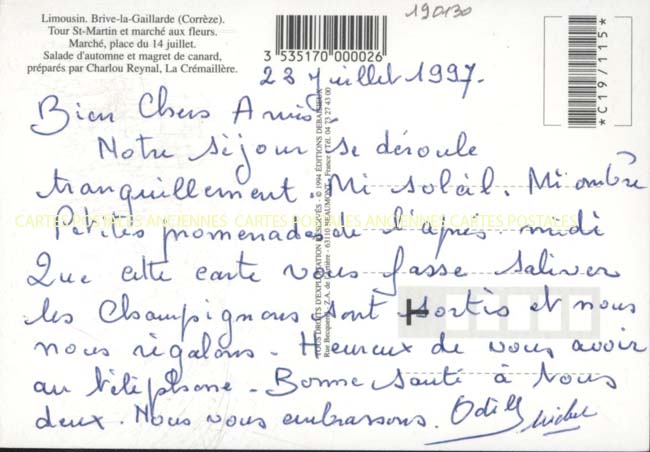 Limousin. Brive-la-Gaillarde (Corrèze).
Tour St-Martin et marché aux fleurs.
Marché, place du 14 juillet.
Salade d'automne et magret de canard,
préparés par Charlou Reynal, La Crémaillère.
3 535170 000026
190130
*C19/115*
23 Juillet 1997.
Bien Chers Amis.
Notre séjour se déroule
tranquillement. Mi soleil. Mi ombre
Petites promenades de l'après midi
Que cette carte vous fasse saliver
les Champignons sont sortis et nous
nous régalons. Heureux de vous avoir
au téléphone. Bonne santé à vous
deux. Nous vous embrassons. Odile
Michel
CARTES POSTALES ANCIENNES CARTES POSTALES ANCIENNES CARTES POSTALES
TOUS DROITS D'EXPLOITATION RÉSERVÉS - © 1994 ÉDITIONS DEBAISIEUX
63110 BEAUMONT - France / Tél. 04 73 27 43 00